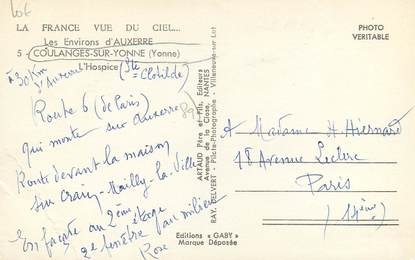 Lot
LA FRANCE VUE DU CIEL...
Les Environs d'AUXERRE
5 - COULANGES-SUR-YONNE (Yonne)
L'Hospice (Ste Clotilde)
à 30 km d'Auxerre
Route 6 (de Paris)
qui monte sur Auxerre
Route devant la maison
sur Crain - Mailly-la-Ville
En façade au 2ème étage
2e fenêtre au milieu
Rose
89
ARTAUD Père et Fils, Editeurs
Avenue de la Close, NANTES
RAY. DELVERT - Pilote-Photographe - Villeneuve-sur-Lot
Editions « GABY »
Marque Déposée
PHOTO
VERITABLE
A Madame H. Hiernard
18 Avenue Leclerc
Paris
(14ème)